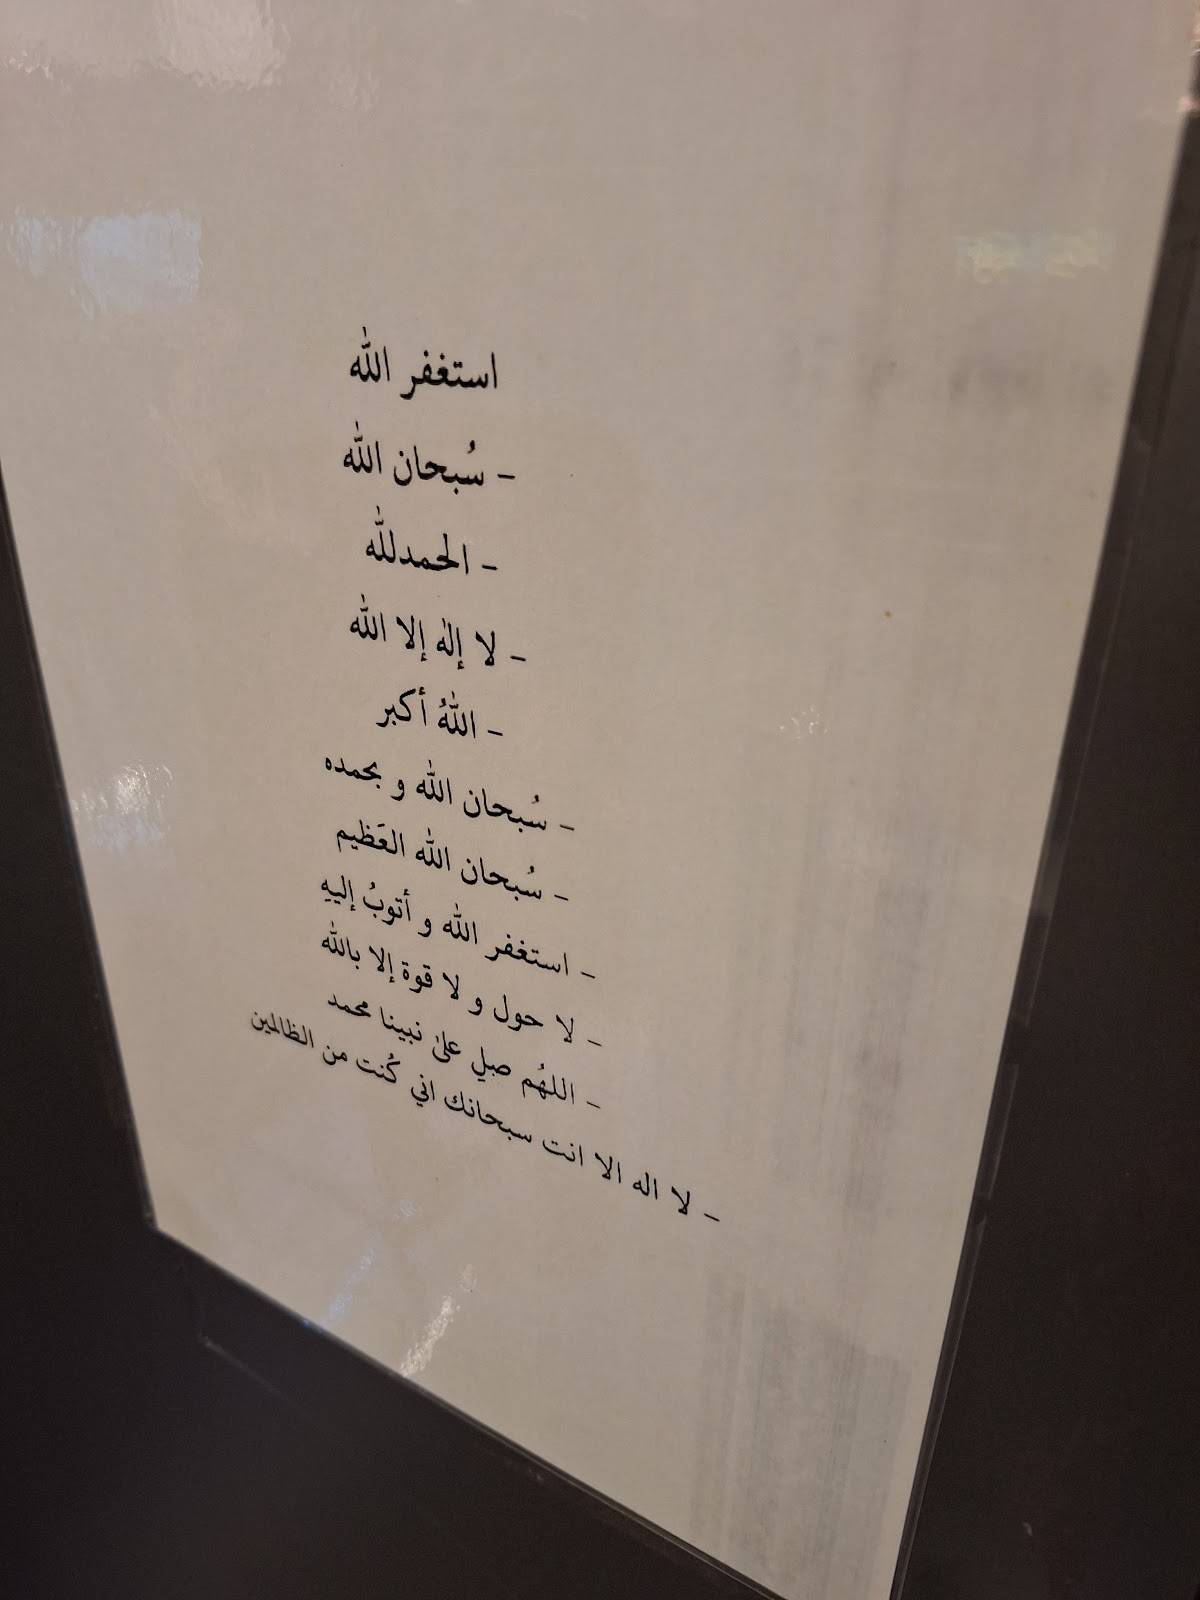 استغفر الله
- سُبحان الله
- الحمدلله
- لا إله إلا الله
- اللهُ أكبر
- سُبحان الله و بحمده
- سُبحان الله العَظيم
- استغفر الله و أتوبُ إليهِ
- لا حول و لا قوة إلا بالله
- اللهُم صلِ على نبينا محمد
- لا اله الا انت سبحانك اني كُنت من الظالمين